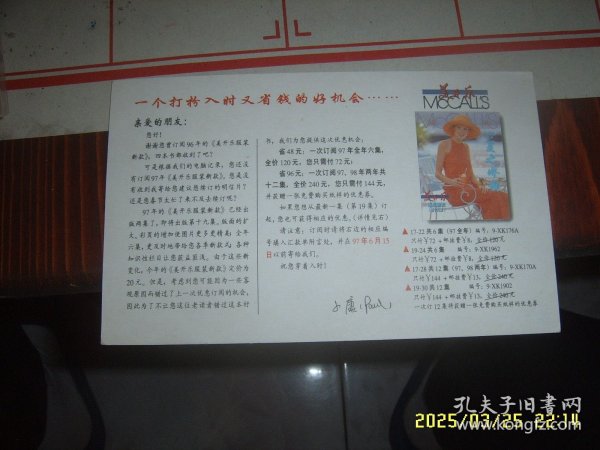 一个打扮入时又省钱的好机会……
亲爱的朋友：
您好！
谢谢您曾订阅96年的《美开乐服装
新款》，四本书都收到了吧？
可是根据我们的电脑记录，您还没
有订阅97年《美开乐服装新款》，您是没
有收到我寄给您建议您续订的明信片？
还是您春节太忙了来不及去续订呢？
97年的《美开乐服装新款》已经出
版两集了，即将出版第十九集，版面的扩
大，彩页的增加使图片更多更精美；全年
六集，更及时地带给您春季新款式；各种
知识性栏目让您获益匪浅。由于这些新
变化，今年的《美开乐服装新款》定价为
20元。但是，考虑到您可能因为一些客
观原因而错过了上一次优惠订阅的机会，
因此为了不让您这位老读者错过这本好
书，我们为您提供这次优惠机会：
省48元：一次订阅97年全年六集，
全价120元，您只需付72元；
省96元：一次订阅97、98年两年共
十二集，全价240元，您只需付144元，
并获赠一张免费购买纸样的优惠券。
如果您想从最新一集（第19集）订
起，您也可获得相应的优惠。（详情见右）
请注意：订阅时请将右边的相应编
号填入汇款单附言处，并在97年6月15
日以前寄给我们。
祝您穿着入时！
(Paul)
美开乐
McCALL'S
▲17-22共6集（97全年） 编号：9-XK176A
只付￥72＋邮挂费￥8，全价120元
▲19-24共6集 编号：9-XK1962
只付￥72＋邮挂费￥8，全价120元
▲17-28共12集（97、98两年） 编号：9-XK170A
只付￥144＋邮挂费￥13，全价240元
▲19-30共12集 编号：9-XK1902
只付￥144＋邮挂费￥13，全价240元
一次订12集将获赠一张免费购买纸样的优惠券
2025/03/25 22:14
孔夫子旧書网
www.kongfz.com